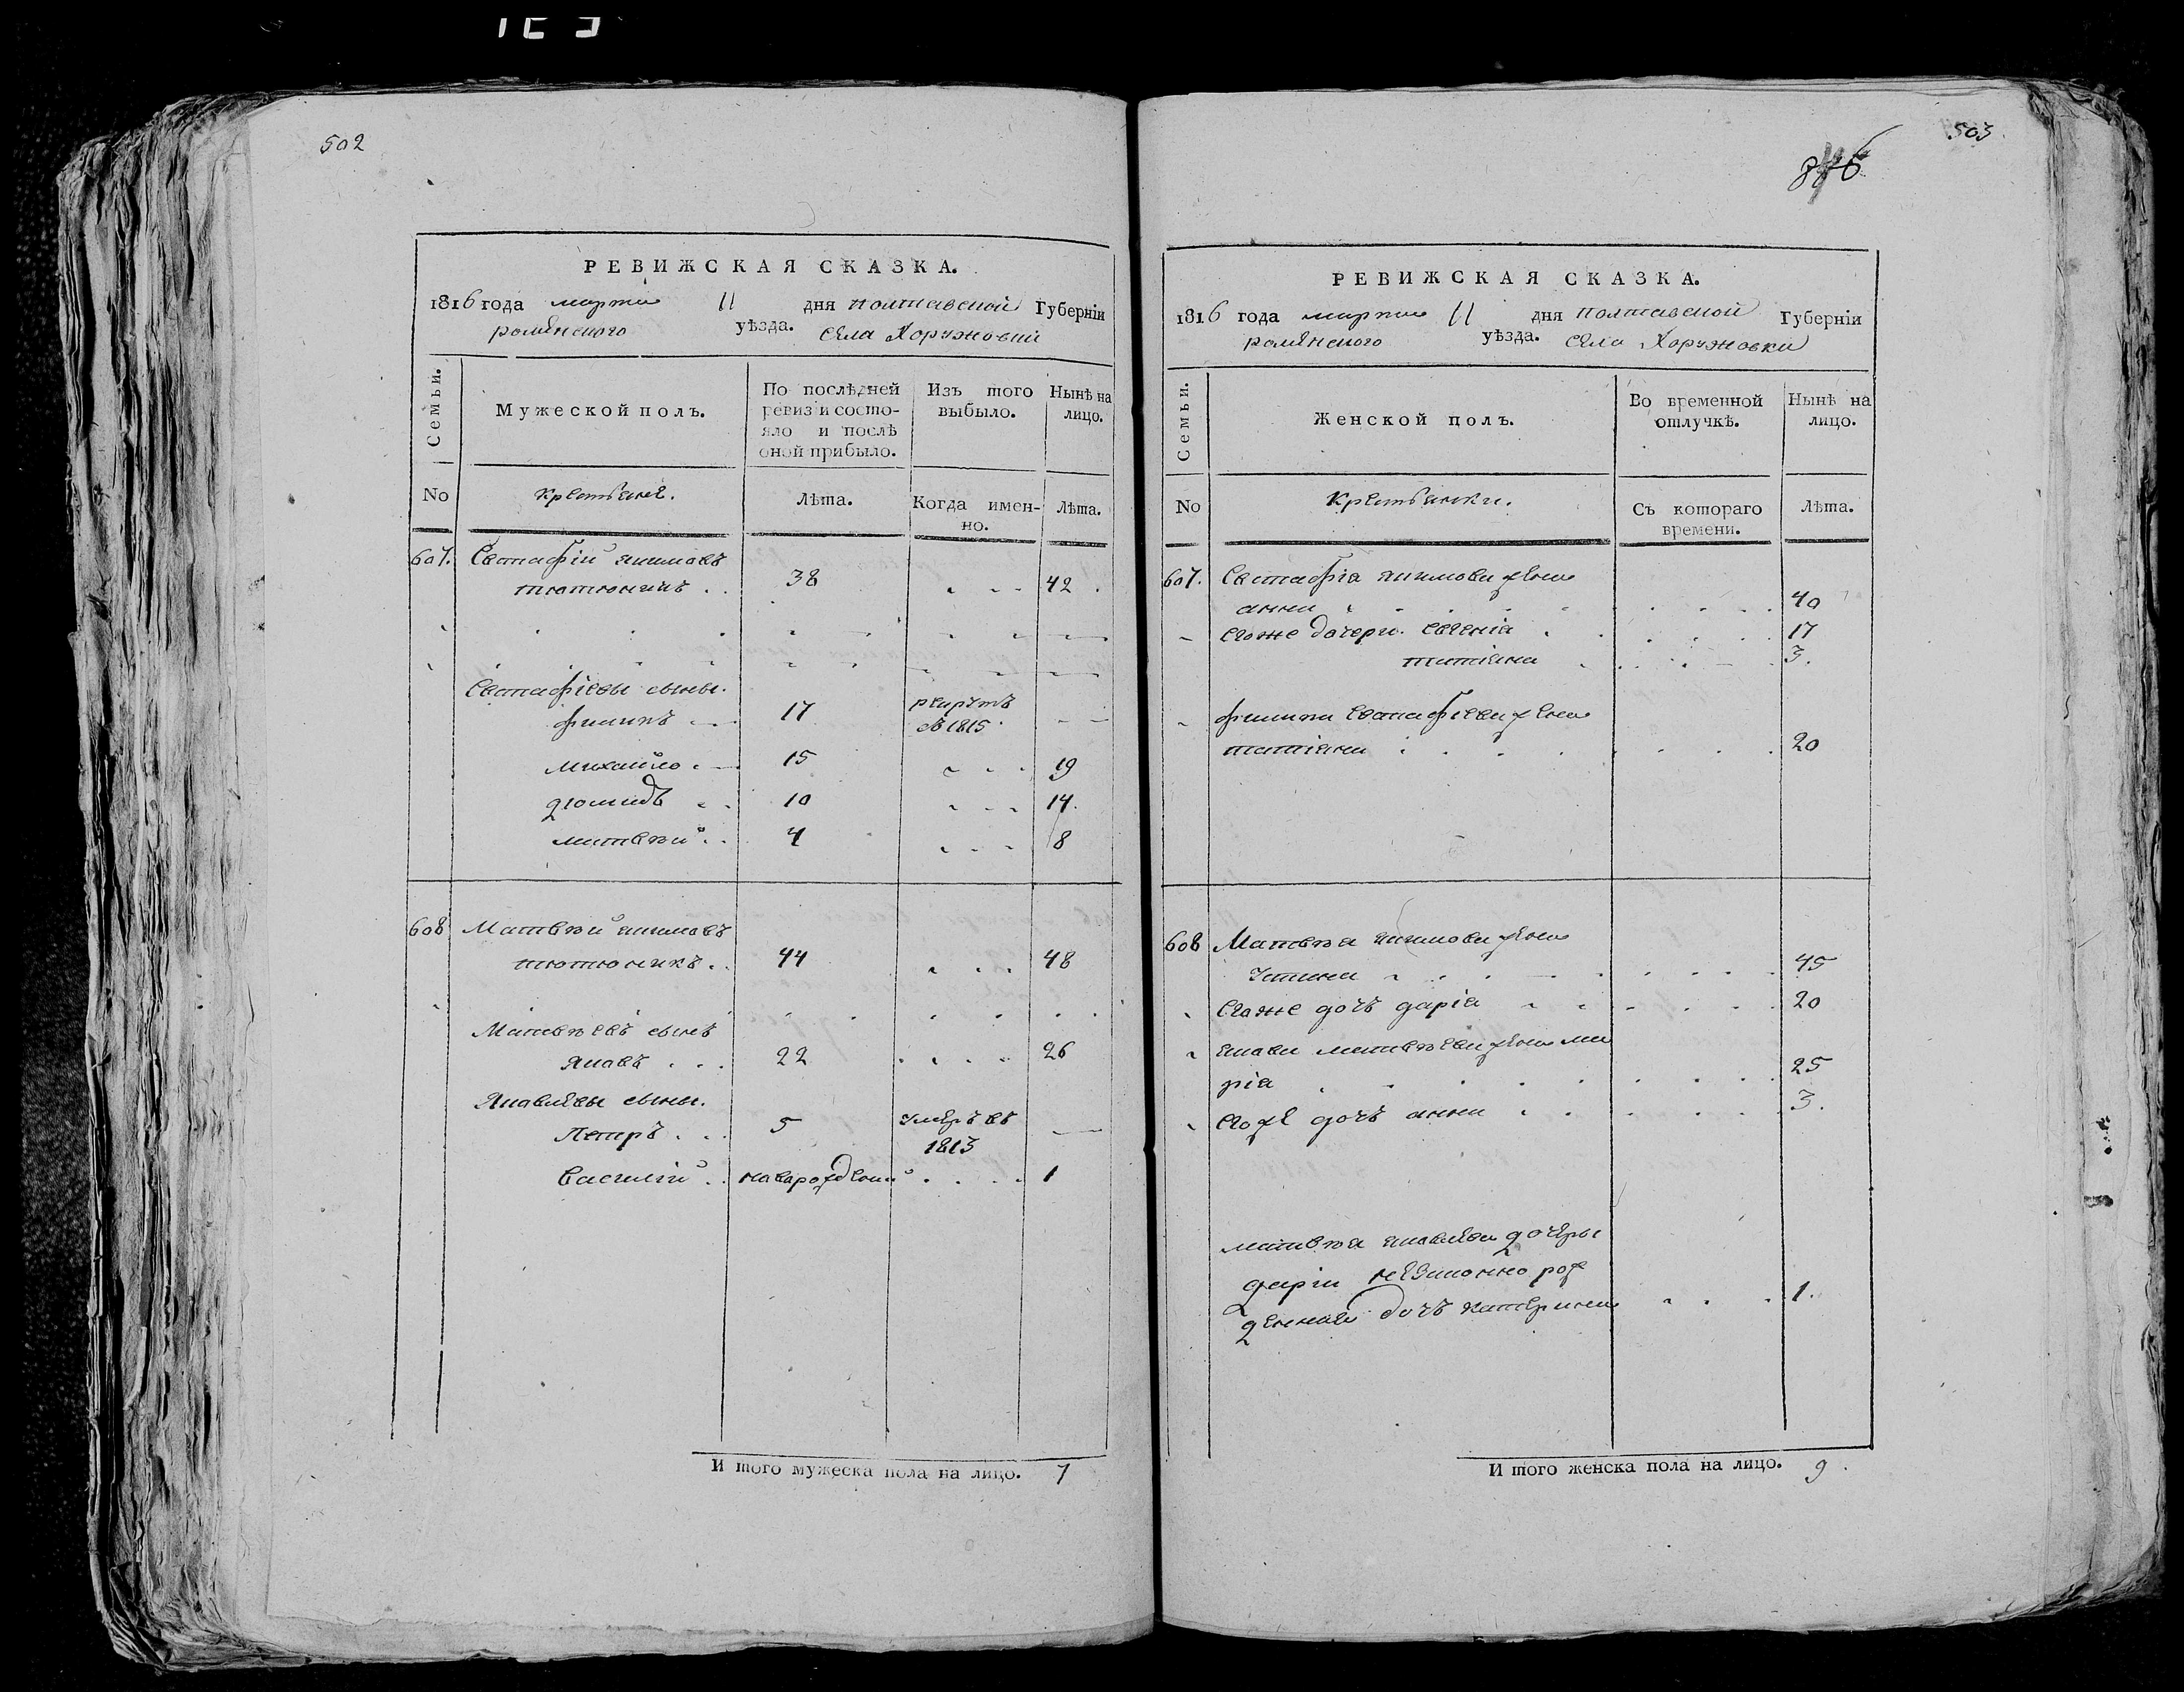 502
РЕВИЖСКАЯ СКАЗКА.
1816 года марта 11 дня полтавской Губерніи
роменского уѣзда. села Хоружовки
Семьи.
Мужеской полъ.
По послѣдней ревизіи состояло и послѣ оной прибыло.
Изъ того выбыло.
Нынѣ на лицо.
No
крестьяне.
Лѣта.
Когда именно.
Лѣта.
607. Евстафій якимовъ
тютюникъ . . 38 . . . 42 .
Евстафіевы сыны.
филипъ 17 рекрутъ
въ 1815
михайло . 15 . . . 19
диомидъ . . 10 . . . 14.
матвѣй . . 4 . . . 8
608 Матвѣй якимовъ
тютюникъ . . 44 . . . 48
Матвѣевъ сынъ
Яковъ . . . 22 . . . . 26
Яковлевы сыны.
Петръ . . . 5 умеръ въ
1813
Василій . . наворожденый . . . . 1
И того мужеска пола на лицо. 7
503.
РЕВИЖСКАЯ СКАЗКА.
1816 года марта 11 дня полтавской Губерніи
роменского уѣзда. села Хоружовки
Семьи.
Женской полъ.
Во временной отлучкѣ.
Нынѣ на лицо.
No
Крестьянки.
Съ котораго времени.
Лѣта.
607. Евстафіа якимова жена
анна 40
егоже дочери. евгеніа 17
татіана 3.
филипа Евстафіева жена
татіана 20
608 Матвѣа якимова жена
Устина 45
егоже дочъ даріа 20
якова матвѣева жена ма
ріа 25
егоже дочъ анна 3.
матвѣа яковлева дочеры
даріи незаконно рож
денная дочъ катерина 1.
И того женска пола на лицо. 9.